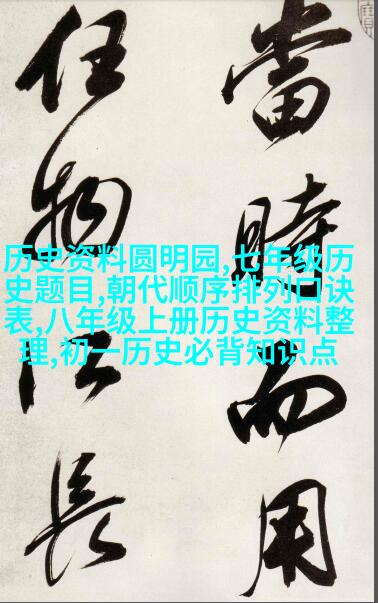 當時而用
任物以長
历史资料圆明园,七年级历
史题目,朝代顺序排列口诀
表,八年级上册历史资料整
理,初一历史必背知识点